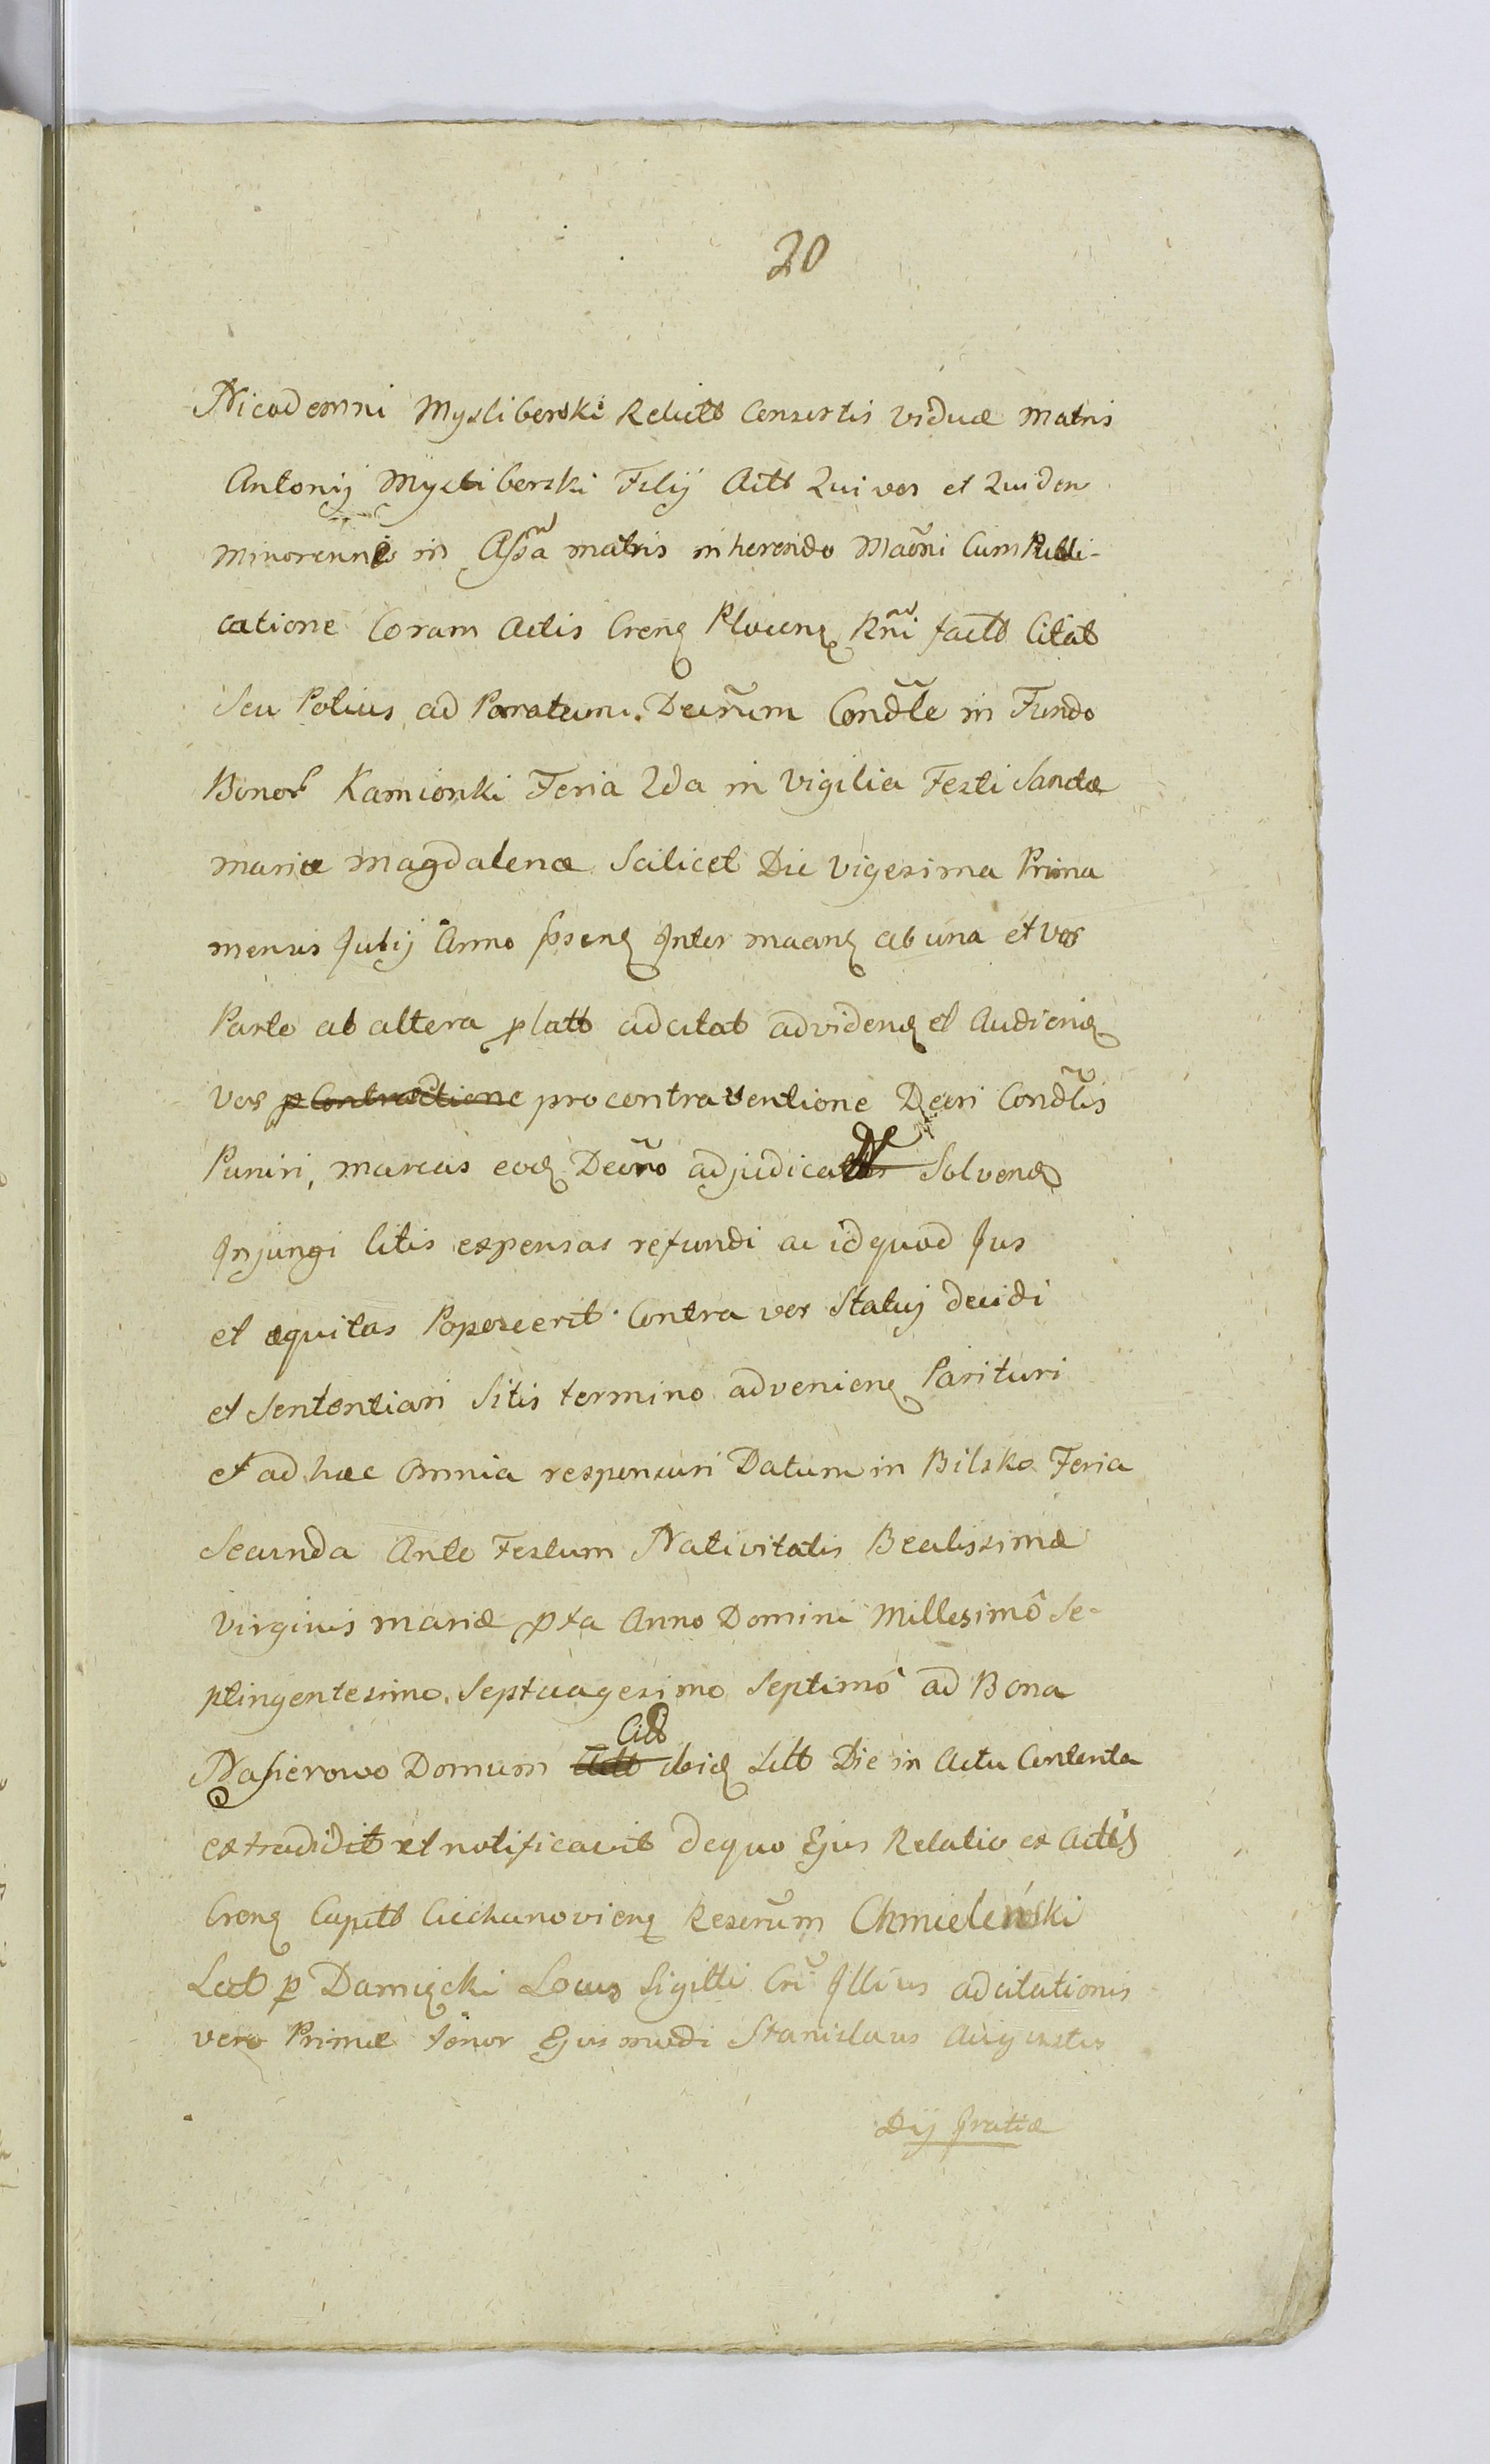 20
Nicodemni Mysliberski Relictt Consortis viduæ Matris
Antonij Mysliberski Filij Actt Quivos et Quidem
minorenni in Assa matris inherendo Maõni Cum Publi-
catione Coram Actis Crenq Plocenq Rñi factt Citat
Seu Potius ad Paratum. Decrũm Condle in Fundo
Bonor Kamionki Feria 2da in Vigilia Festi Sanctæ
mariæ Magdalenæ Scilicet Die Vigesima Prima
mensis Julij Anno pssenq Inter maanq ab una et Vos
Parte ab altera platt adcitat advidenq et Audienq
Vos p Contractione procontraventione Decri Condlis
Puniri, marcas eoq Decrõ adjudicatt Solvenq
Injungi litis expensas refundi ac idquod Jus
et æquitas Poposcerit Contra vos Statuj decidi
et Sententiari Sitis termino advenienq Parituri
et ad hæc Omnia responsuri Datum in Bilsko Feria
Secunda Ante Festum Nativitatis Beatissimæ
Virginis mariæ pxa Anno Domini Millesimô Se-
ptingentesimo Septuagesimo Septimô ad Bona
Nasierowo Domum Actt Citt ibiq Litt Die in Actu Contenta
extradidit et notificavit dequo Ejus Relatio ex Actis
Crenq Capitt Ciechanovienq Reserũm Chmieleński
Lect p Damięcki Locus Sigilli Cri Illius adcitationis
vero Primæ tenor Ejusmodi Stanislaus Augustus
Dij Gratiæ